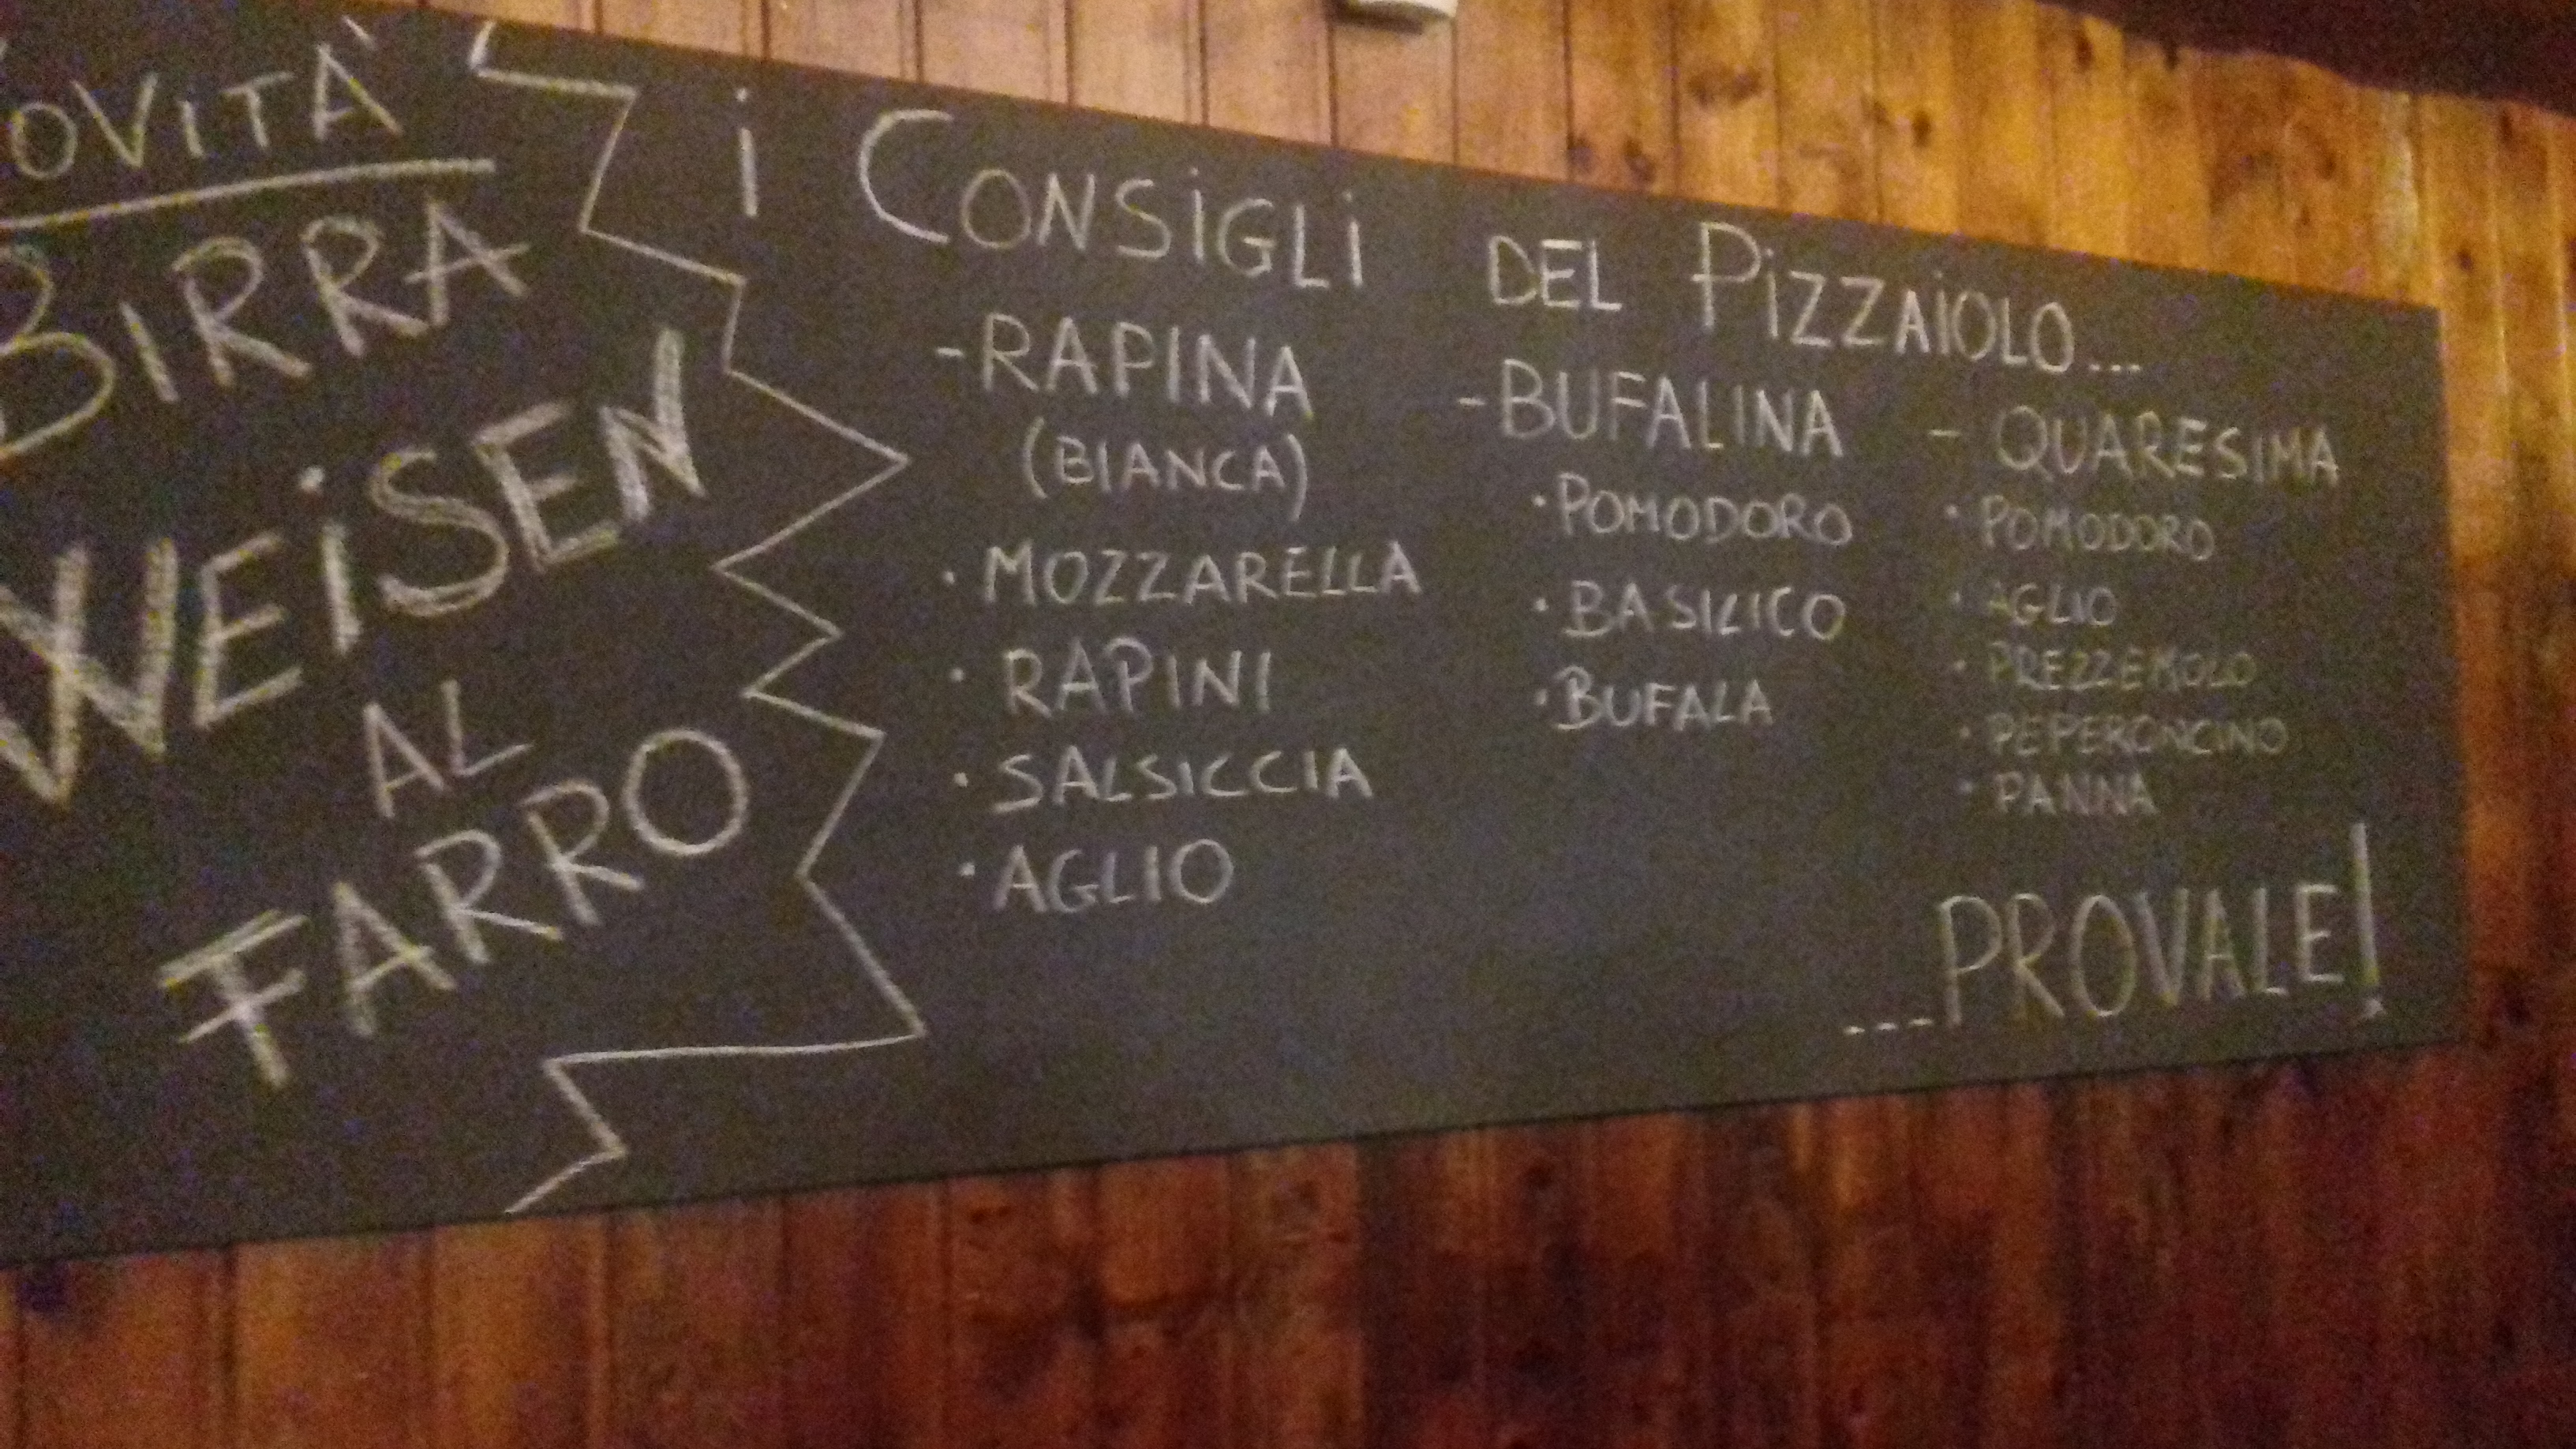 OVITÀ
BIRRA
WEISEN
AL
FARRO
i CONSIGLI DEL PIZZAIOLO...
-RAPINA
(BIANCA)
·MOZZARELLA
·RAPINI
·SALSICCIA
·AGLIO
-BUFALINA
·POMODORO
·BASILICO
·BUFALA
- QUARESIMA
·POMODORO
·AGLIO
·PREZZEMOLO
·PEPERONCINO
·PANNA
...PROVALE!